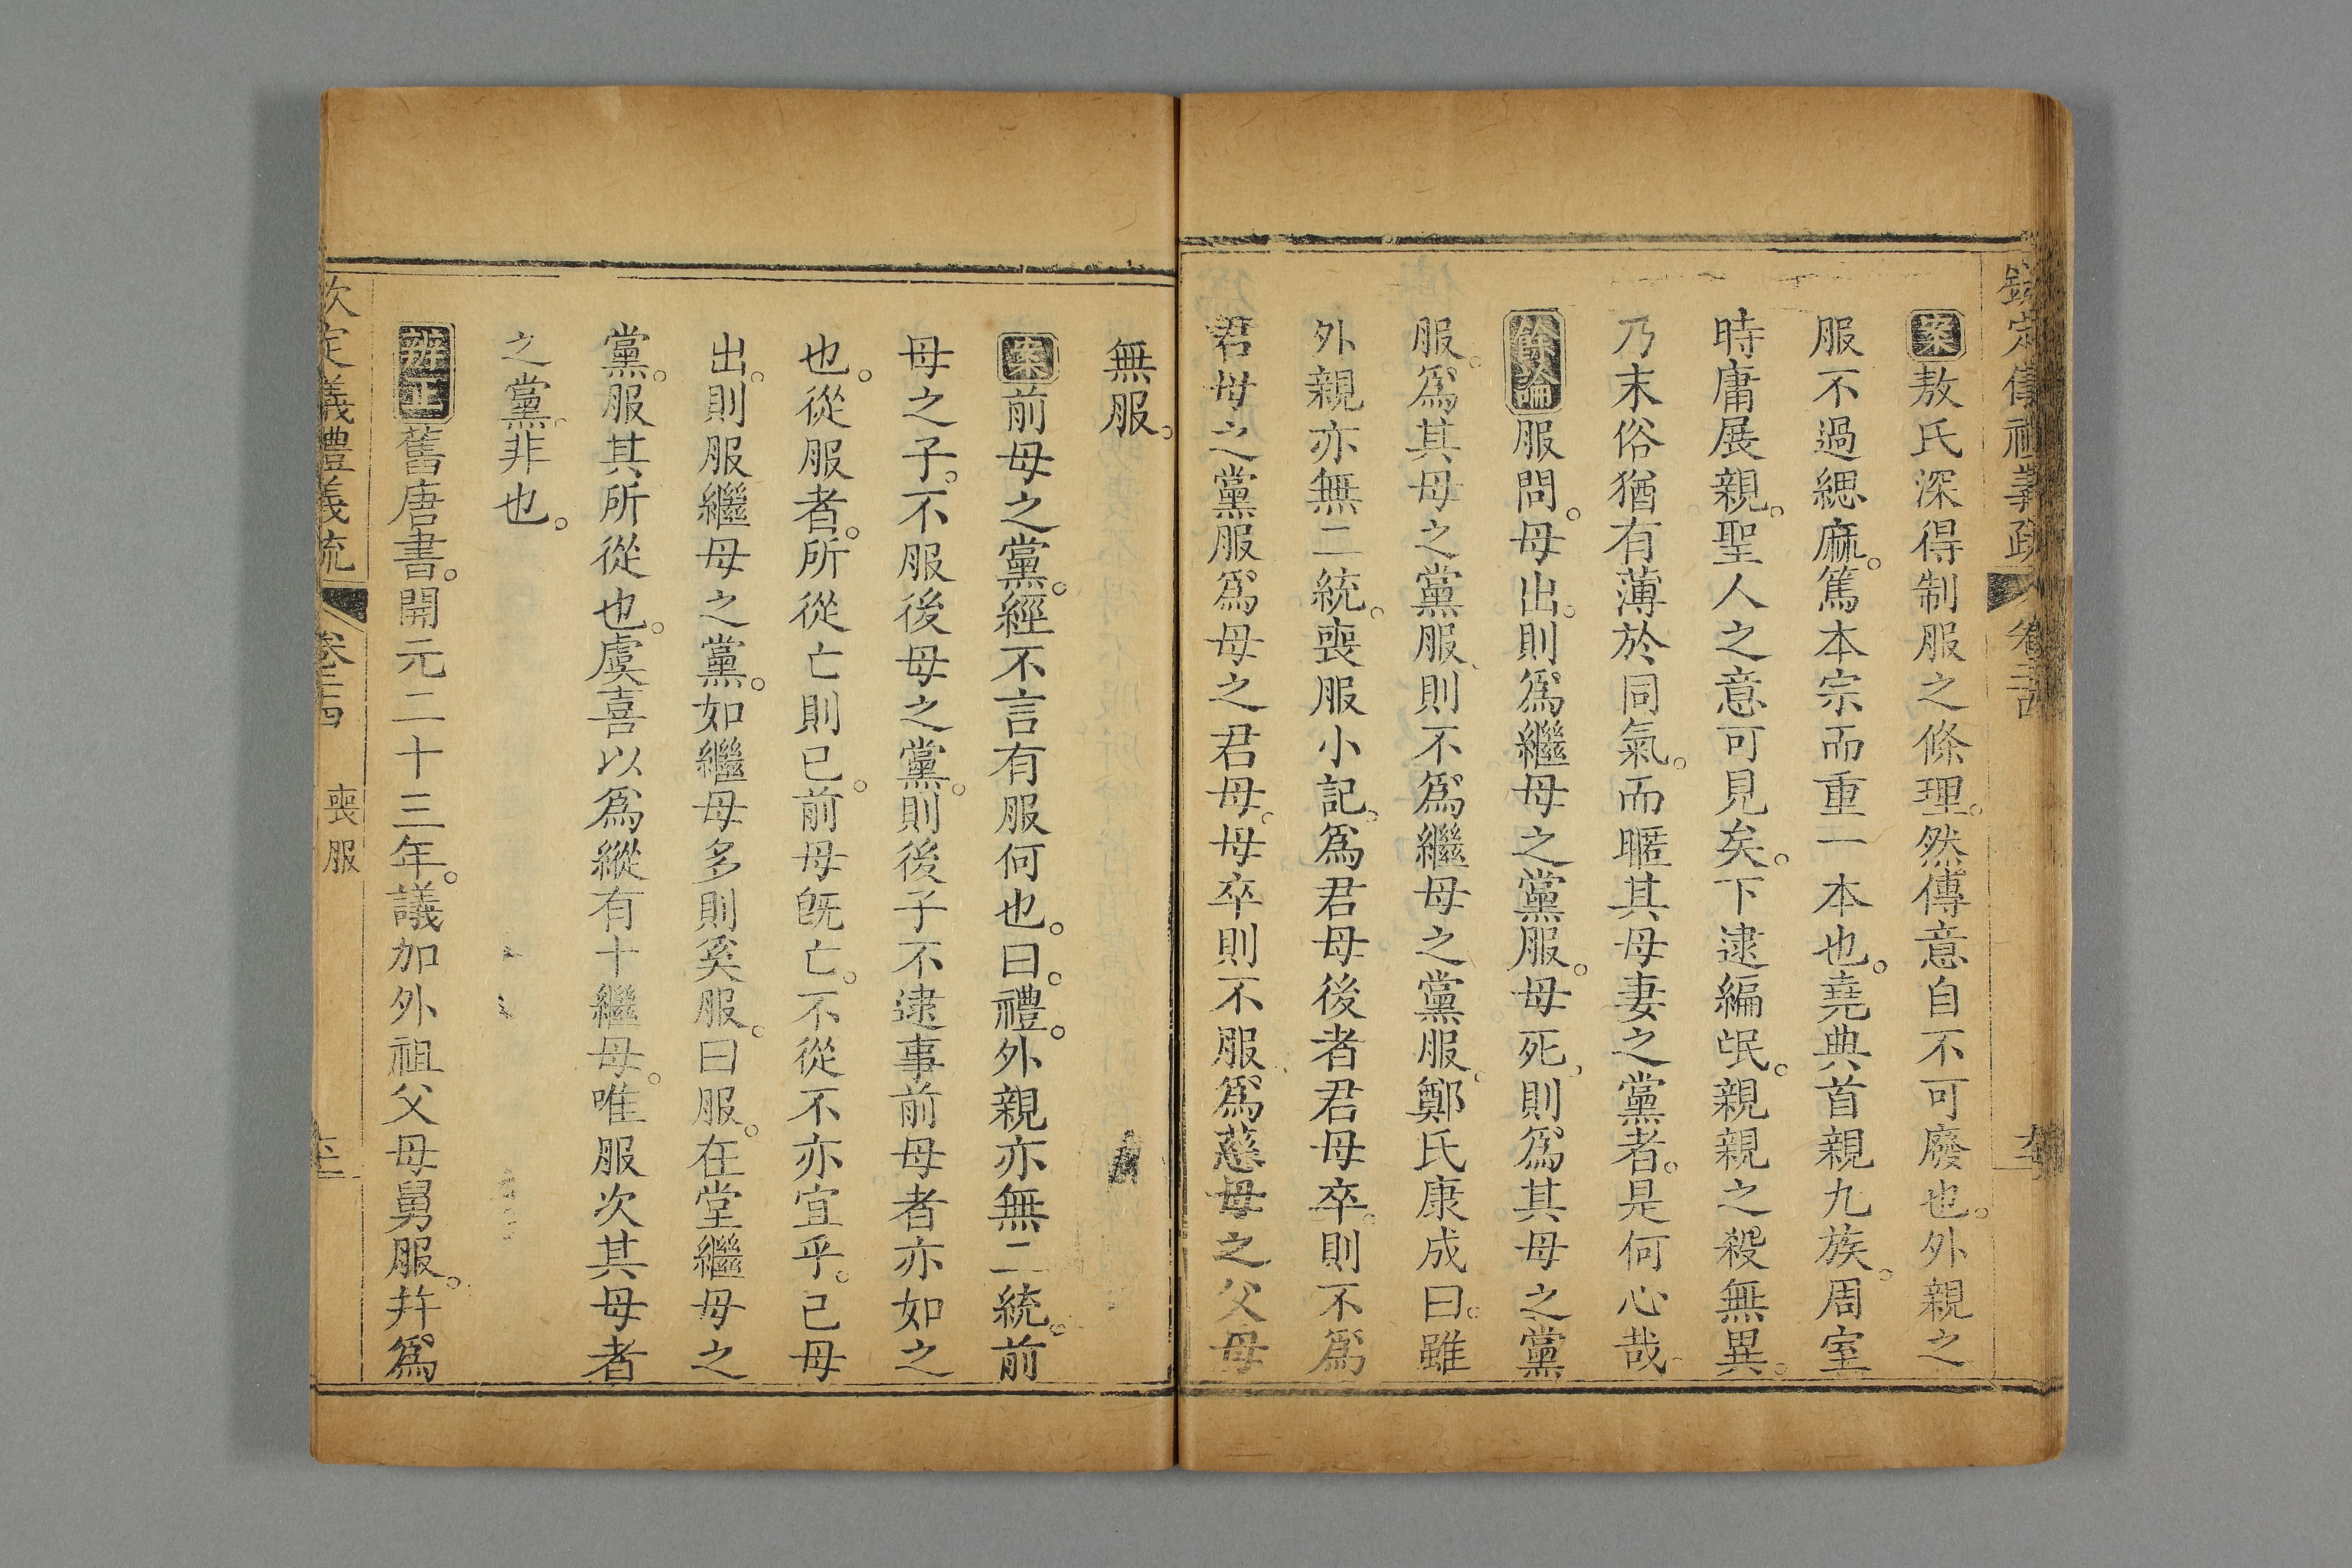 欽定儀禮義疏 卷二十四
案敖氏深得制服之條理。然傳意自不可廢也。外親之
服不過緦麻。篤本宗而重一本也。堯典首親九族。周室
時庸展親。聖人之意可見矣。下逮編氓。親親之殺無異。
乃末俗猶有薄於同氣。而暱其母妻之黨者。是何心哉。
餘論服問。母出。則爲繼母之黨服。母死、則爲其母之黨
服。爲其母之黨服、則不爲繼母之黨服。鄭氏康成曰。雖
外親亦無二統。喪服小記。爲君母後者君母卒。則不爲
君母之黨服爲母之君母。母卒則不服爲慈母之父母
無服。
案前母之黨。經不言有服何也。曰。禮。外親亦無二統。前
母之子。不服後母之黨。則後子不逮事前母者亦如之
也。從服者。所從亡則已。前母旣亡。不從不亦宜乎。己母
出。則服繼母之黨。如繼母多則奚服。曰服。在堂繼母之
黨。服其所從也。虞喜以爲縱有十繼母。唯服次其母者
之黨。非也。
辨正舊唐書。開元二十三年。議加外祖父母舅服。幷爲
欽定儀禮義疏 卷二十四 喪服